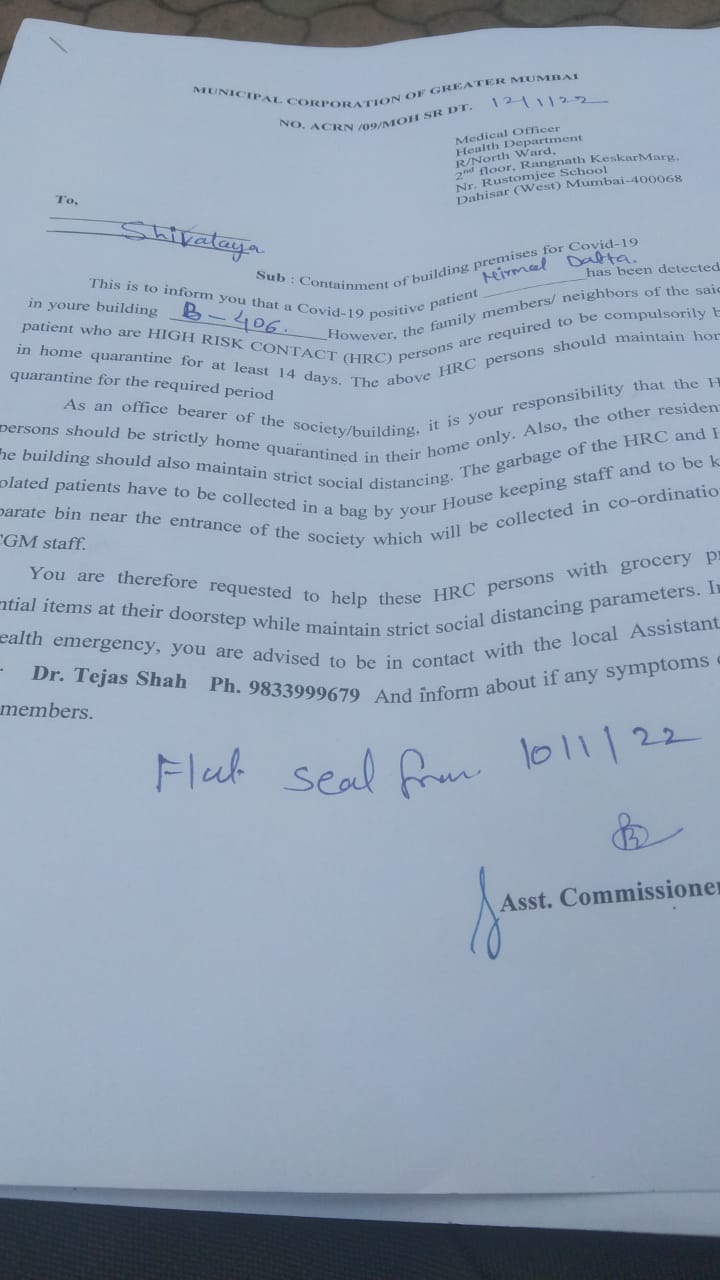 MUNICIPAL CORPORATION OF GREATER MUMBAI
NO. ACRN /09/MOH SR DT. 12/1/22
Medical Officer
Health Department
R/North Ward,
2nd floor, Rangnath KeskarMarg,
Nr. Rustomjee School
Dahisar (West) Mumbai-400068
To,
Shivalaya
Sub : Containment of building premises for Covid-19
This is to inform you that a Covid-19 positive patient Nirmal Datta. has been detected
in youre building B-406. However, the family members/ neighbors of the said
patient who are HIGH RISK CONTACT (HRC) persons are required to be compulsorily b
in home quarantine for at least 14 days. The above HRC persons should maintain hom
quarantine for the required period
As an office bearer of the society/building, it is your responsibility that the H
persons should be strictly home quarantined in their home only. Also, the other residen
he building should also maintain strict social distancing. The garbage of the HRC and
olated patients have to be collected in a bag by your House keeping staff and to be k
parate bin near the entrance of the society which will be collected in co-ordinatio
CGM staff.
You are therefore requested to help these HRC persons with grocery pr
ntial items at their doorstep while maintain strict social distancing parameters. I
ealth emergency, you are advised to be in contact with the local Assistant
Dr. Tejas Shah Ph. 9833999679 And inform about if any symptoms
members.
Flat seal from 10/1/22
Asst. Commissioner